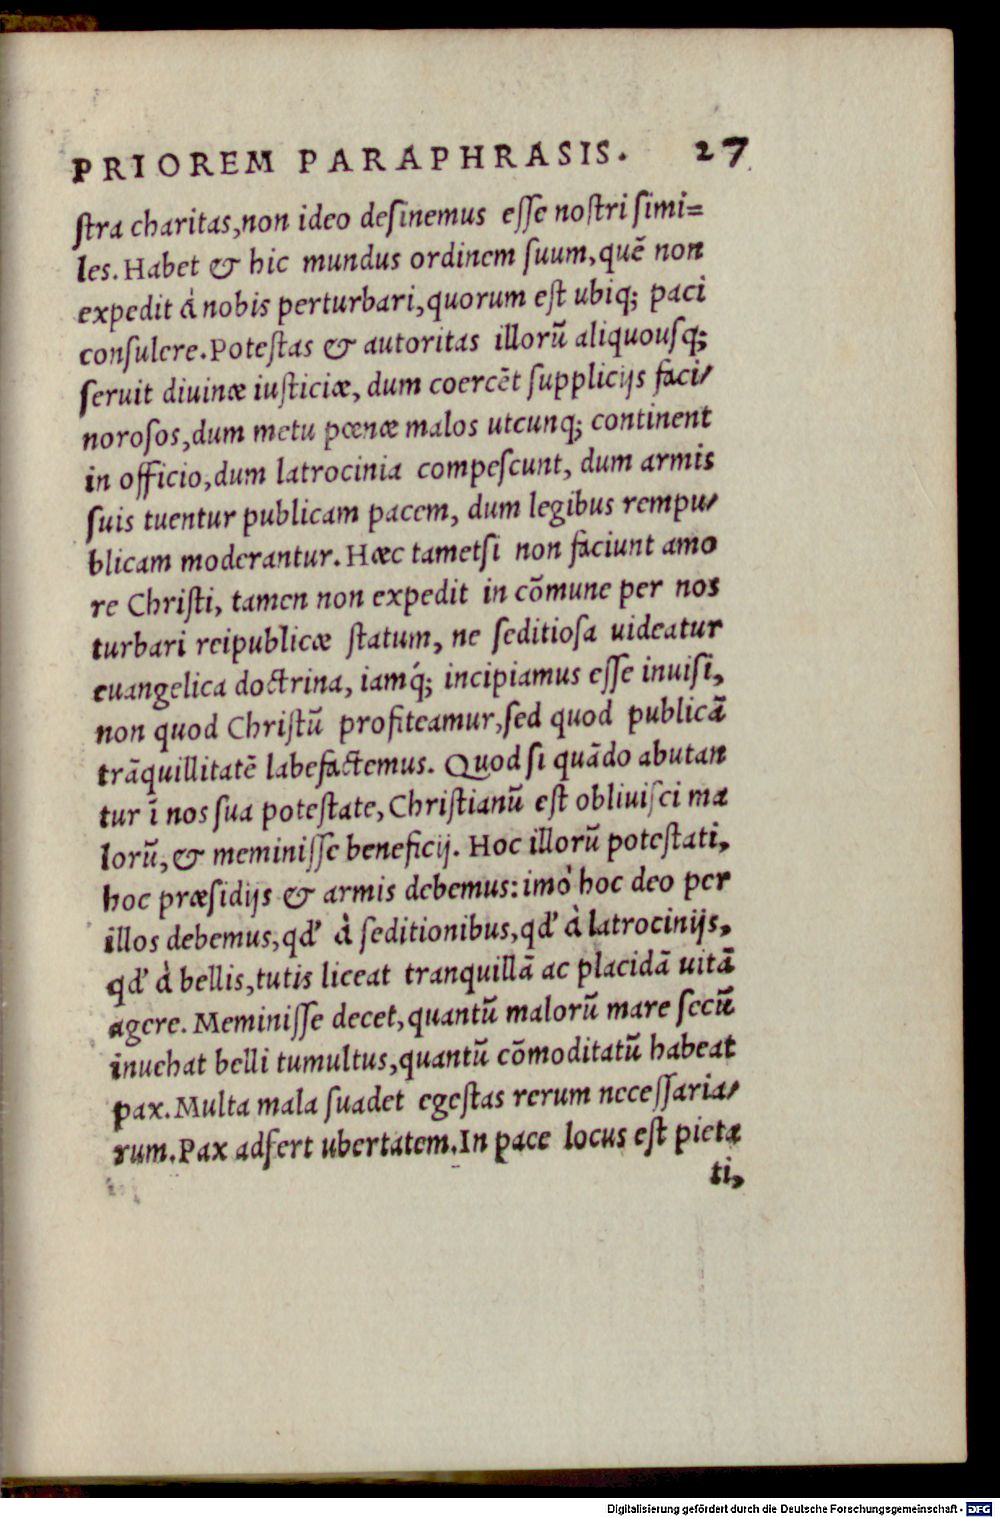 PRIOREM PARAPHRASIS. 27
ſtra charitas,non ideo deſinemus eſſe noſtri ſimi=
les. Habet & hic mundus ordinem ſuum,quē non
expedit à nobis perturbari,quorum eſt ubiq; paci
conſulere.Poteſtas & autoritas illorū aliquouſq;
ſeruit diuinæ iuſticiæ, dum coercēt ſupplicijs faci/
noroſos,dum metu pœnæ malos utcunq; continent
in officio,dum latrocinia compeſcunt, dum armis
ſuis tuentur publicam pacem, dum legibus rempu/
blicam moderantur. Hæc tametſi non faciunt amo
re Chriſti, tamen non expedit in cōmune per nos
turbari reipublicæ ſtatum, ne ſeditioſa uideatur
euangelica doctrina, iamq́; incipiamus eſſe inuiſi,
non quod Chriſtū profiteamur,ſed quod publicā
trāquillitatē labefactemus. Quod ſi quādo abutan
tur ī nos ſua poteſtate,Chriſtianū eſt obliuiſci ma
lorū,& meminiſſe beneficij. Hoc illorū poteſtati,
hoc præſidijs & armis debemus: imò hoc deo per
illos debemus,qd' à ſeditionibus,qd' à latrocinijs,
qd' à bellis,tutis liceat tranquillā ac placidā uitā
agere. Meminiſſe decet,quantū malorū mare ſecū
inuehat belli tumultus,quantū cōmoditatū habeat
pax. Multa mala ſuadet egeſtas rerum neceſſaria/
rum.Pax adfert ubertatem.In pace locus eſt pieta
ti,
Digitalisierung gefördert durch die Deutsche Forschungsgemeinschaft - DFG